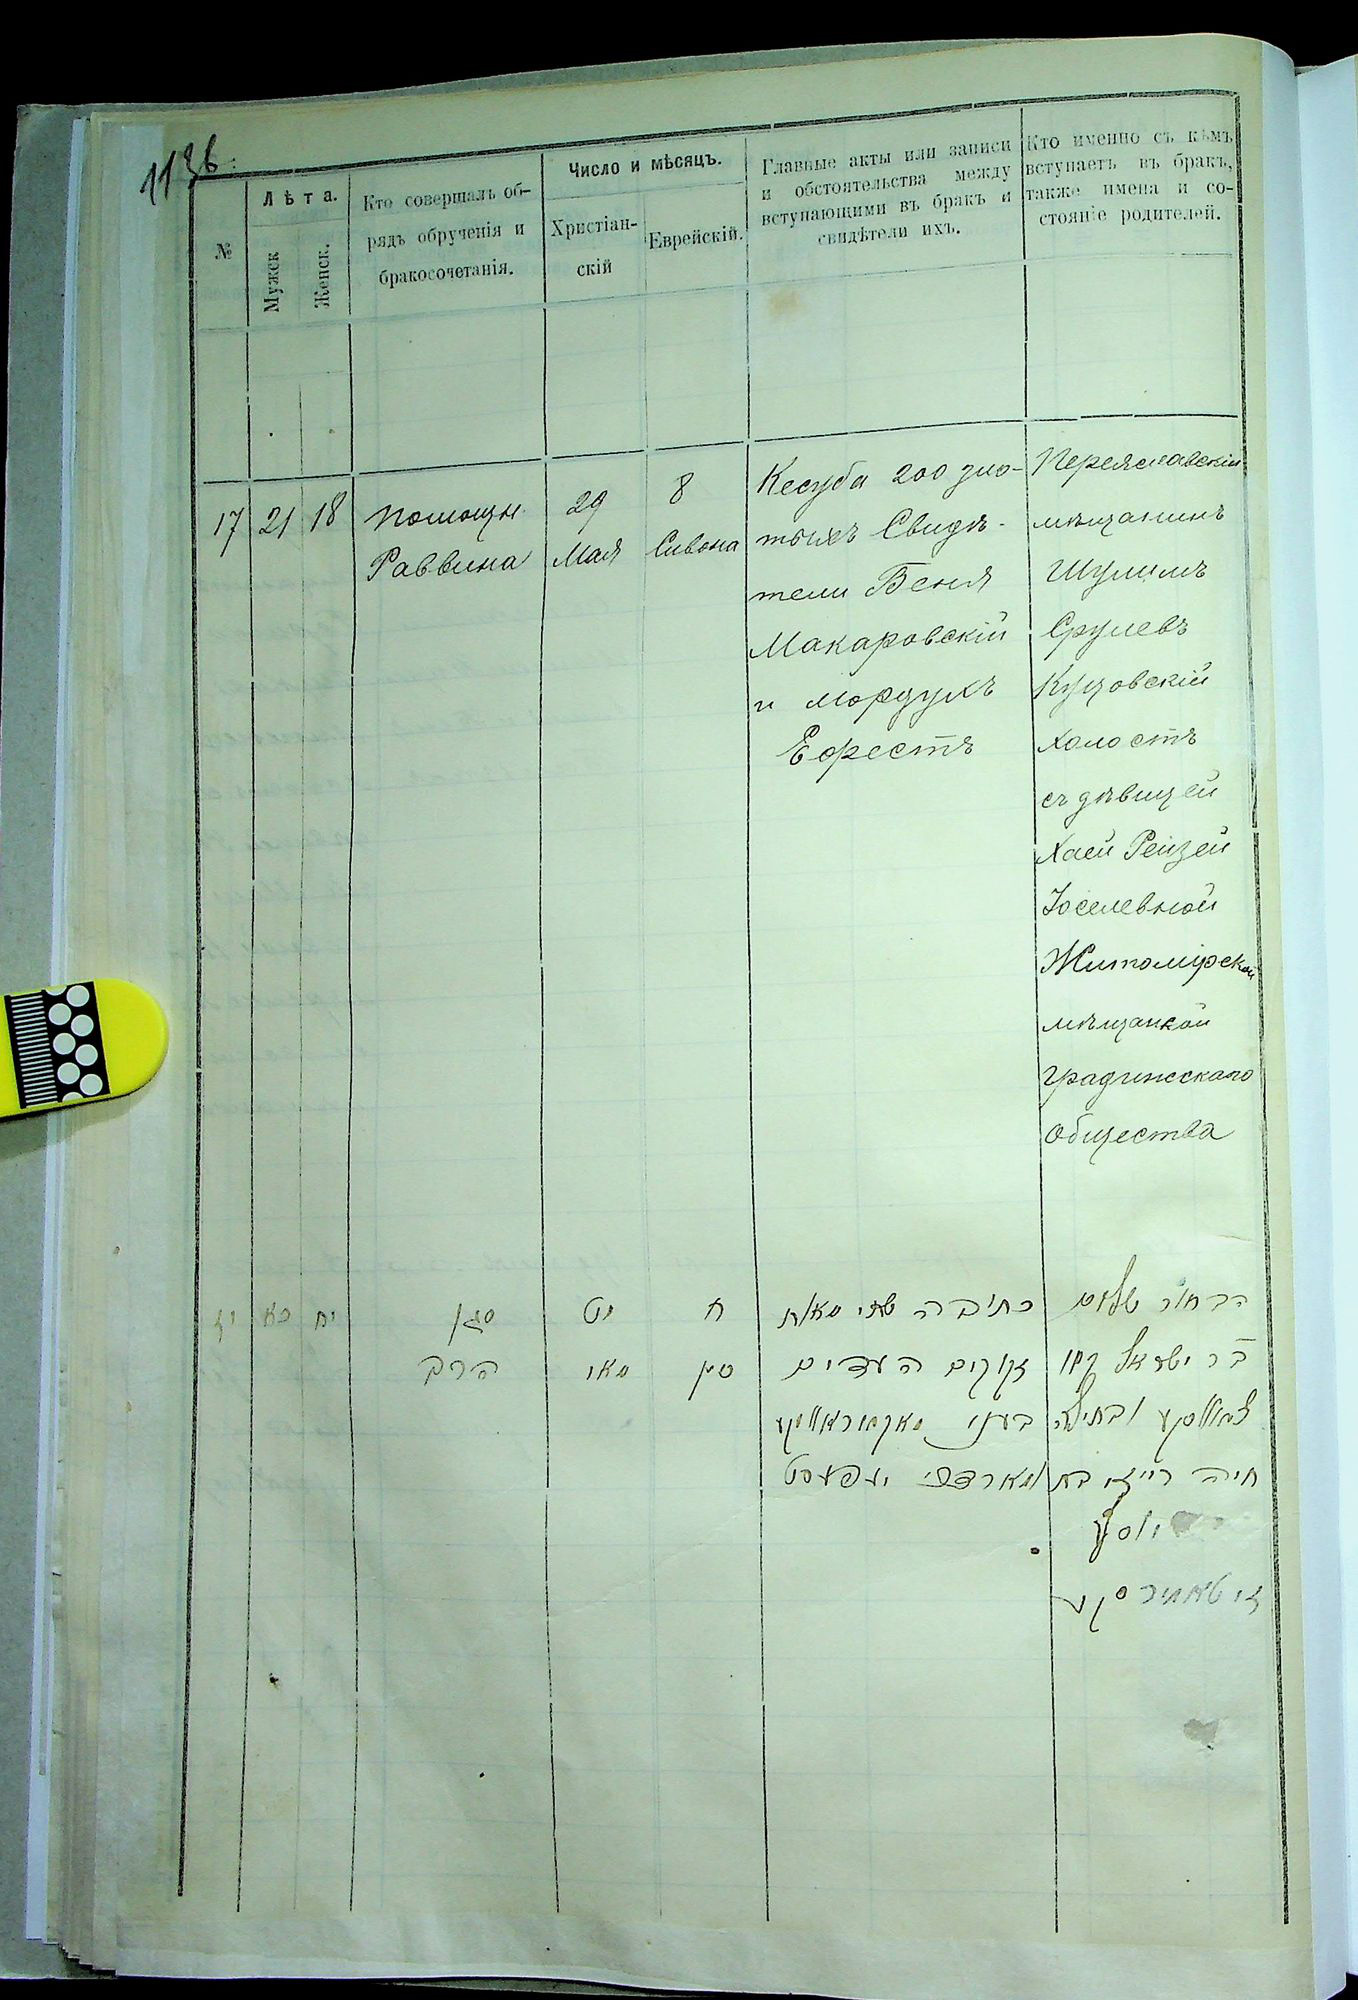 113б
№
Лѣта.
Мужск
Женск.
Кто совершалъ об-
рядъ обрученія и
бракосочетанія.
Число и мѣсяцъ.
Христіан-
скій
Еврейскій.
Главные акты или записи
и обстоятельства между
вступающими въ бракъ и
свидѣтели ихъ.
Кто именно съ кѣмъ
вступаетъ въ бракъ,
также имена и со-
стояніе родителей.
17
21
18
помощн
Раввина
29
Мая
8
Сивона
Кесуба 200 зло-
тыхъ Свидѣ-
тели Беня
Макаровскій
и Мордухъ
Ефестъ
Переяславскій
мѣщанинъ
Шулимъ
Срулевъ
холостъ
съ дѣвицей
Хаей Рейзей
Іоселевной
Житомірской
мѣщанкой
Градижскаго
общества
יז
כא
יח
סגן
הרב
מאי
ח
סיון
כתובה שתי מאות
זקוקים העדים
בעני מאקאראווסקי
ומארדכי יעפעסט
הבחור שלום
בר ישראל
ובתולה
חיה רייזי בת
יוסף
זיטאמירסקי